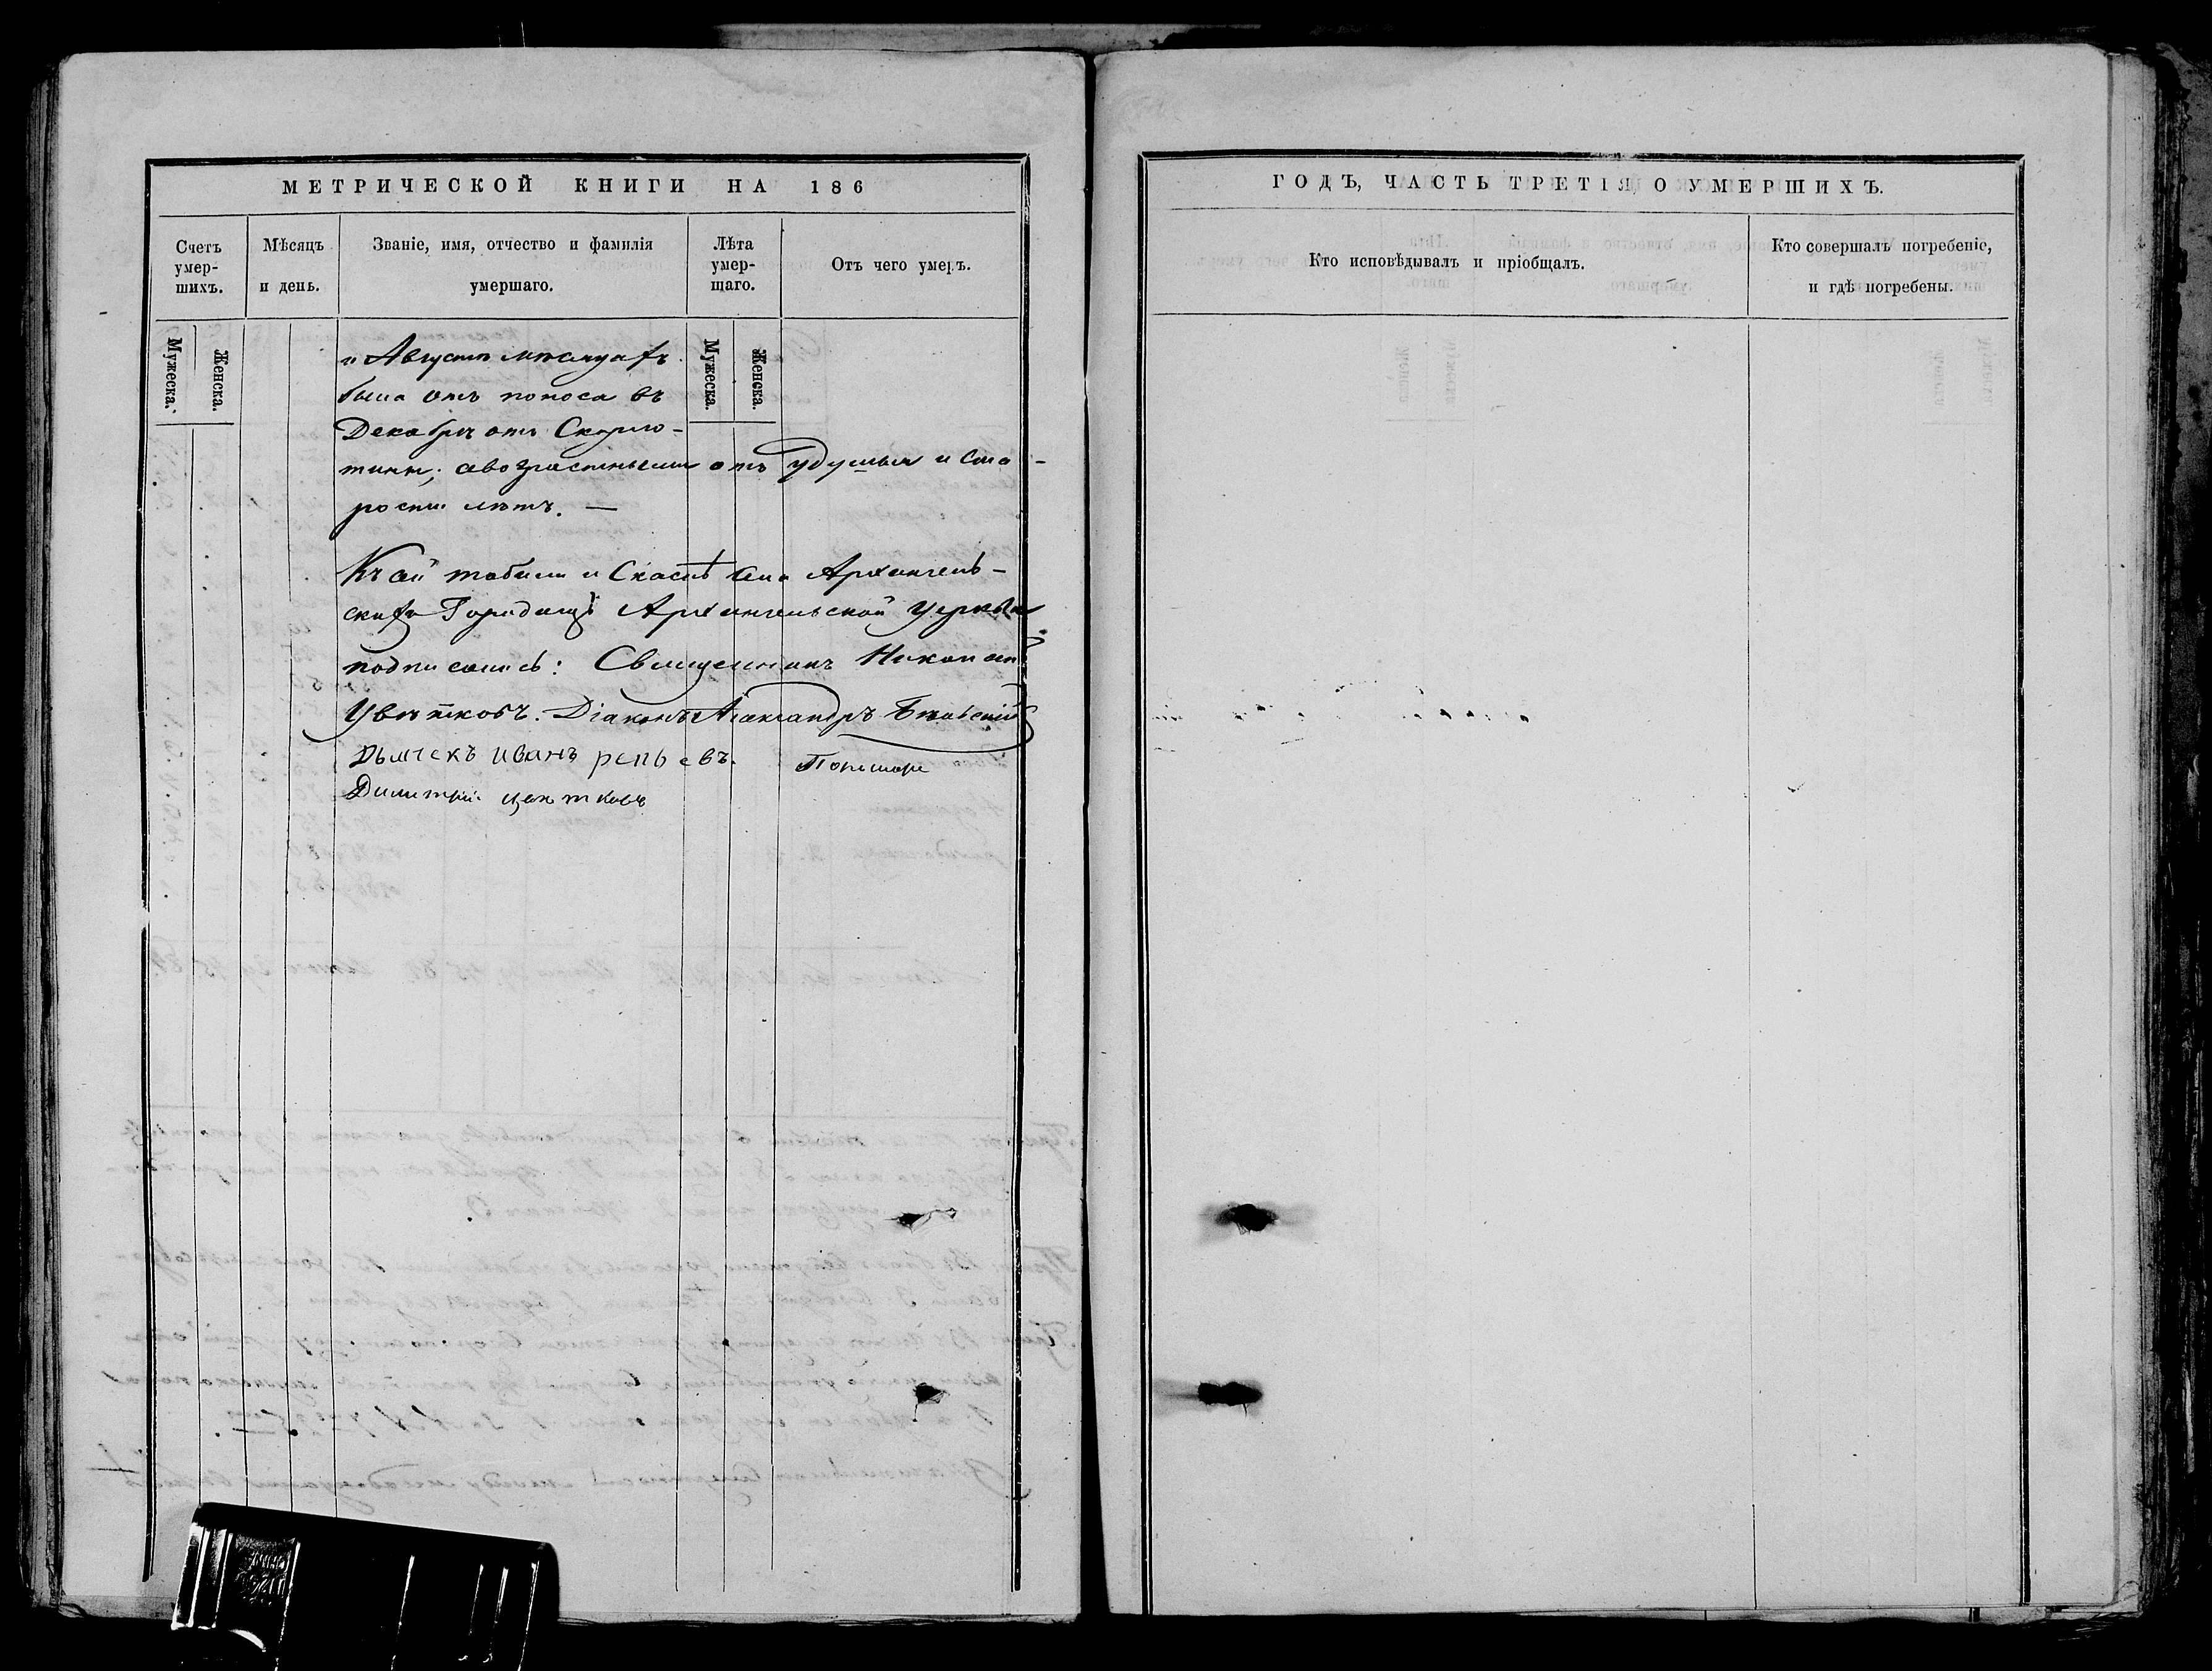 МЕТРИЧЕСКОЙ КНИГИ НА 186
Счетъ умер-шихъ.
Мѣсяцъ и день.
Званіе, имя, отчество и фамилія умершаго.
Лѣта умер-шаго.
Отъ чего умеръ.
Мужеска. Женска.
Мужеска. Женска.
и Августѣ мѣсяцахъ
была отъ поноса въ
Декабрѣ отъ Скарло-
тины; а возрастныхъ отъ удушья и ста-
рости лѣтъ. —
Къ сей табели села Архангель-
скихъ Городищъ Архангельской церкви
подписались: Священникъ Николай
Цвѣтковъ. Діаконъ Александръ
Дьячекъ Иванъ репьевъ. Пономарь
Димитрій цвѣтковъ
ГОДЪ, ЧАСТЬ ТРЕТІЯ, О УМЕРШИХЪ.
Кто исповѣдывалъ и пріобщалъ.
Кто совершалъ погребеніе, и гдѣ погребены.